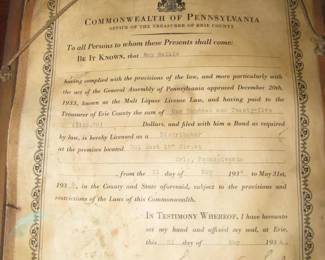 COMMONWEALTH OF PENNSYLVANIA
OFFICE OF THE TREASURER OF ERIE COUNTY
To all Persons to whom these Presents shall come:
BE IT KNOWN, that
having complied with the provisions of the law, and more particularly with
the act of the General Assembly of Pennsylvania approved December 20th,
1933, known as the Malt Liquor License Law, and having paid to the
Treasurer of Erie County the sum of One Hundred and
Dollars, and filed with him a Bond as required
by law, is hereby Licensed as a Distributer
at the premises located East Street
Erie, Pennsylvania
from the 21 day of May 193 to May 31st,
193 , in the County and State aforesaid, subject to the provisions and
restrictions of the Laws of this Commonwealth.
IN TESTIMONY WHEREOF, I have hereunto
set my hand and affixed my seal, at Erie,
this 21 day of May 193